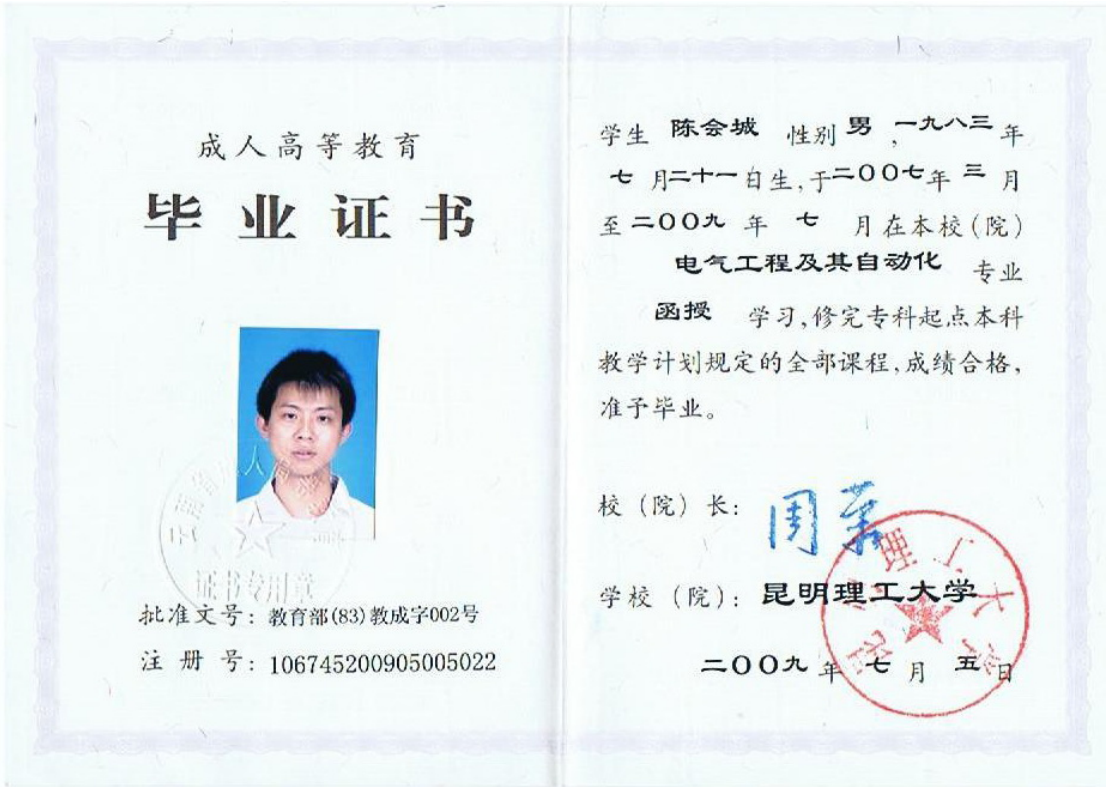 成人高等教育
毕业证书
云南省成人高等教育
证书专用章
批准文号: 教育部(83)教成字002号
注册号: 106745200905005022
学生 陈会城 性别 男, 一九八三年
七月二十一日生,于二〇〇七年 三 月
至二〇〇九 年 七 月在本校(院)
电气工程及其自动化 专业
函授 学习,修完专科起点本科
教学计划规定的全部课程,成绩合格,
准予毕业。
校(院)长: 周荣
学校(院): 昆明理工大学
昆明理工大学
二〇〇九 年 七 月 五 日